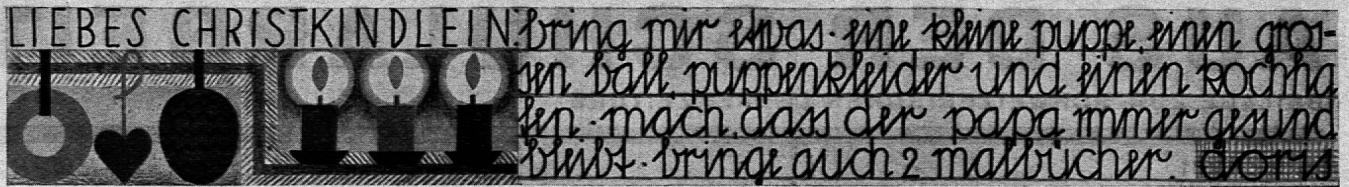 LIEBES CHRISTKINDLEIN: bring mir etwas. eine kleine puppe, einen gros-
sen ball, puppenkleider und einen kochha
fen. mach, dass der papa immer gesund
bleibt. bringe auch 2 malbücher. doris